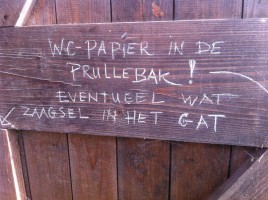 WC-PAPIER IN DE
PRULLEBAK!
EVENTUEEL WAT
ZAAGSEL IN HET GAT